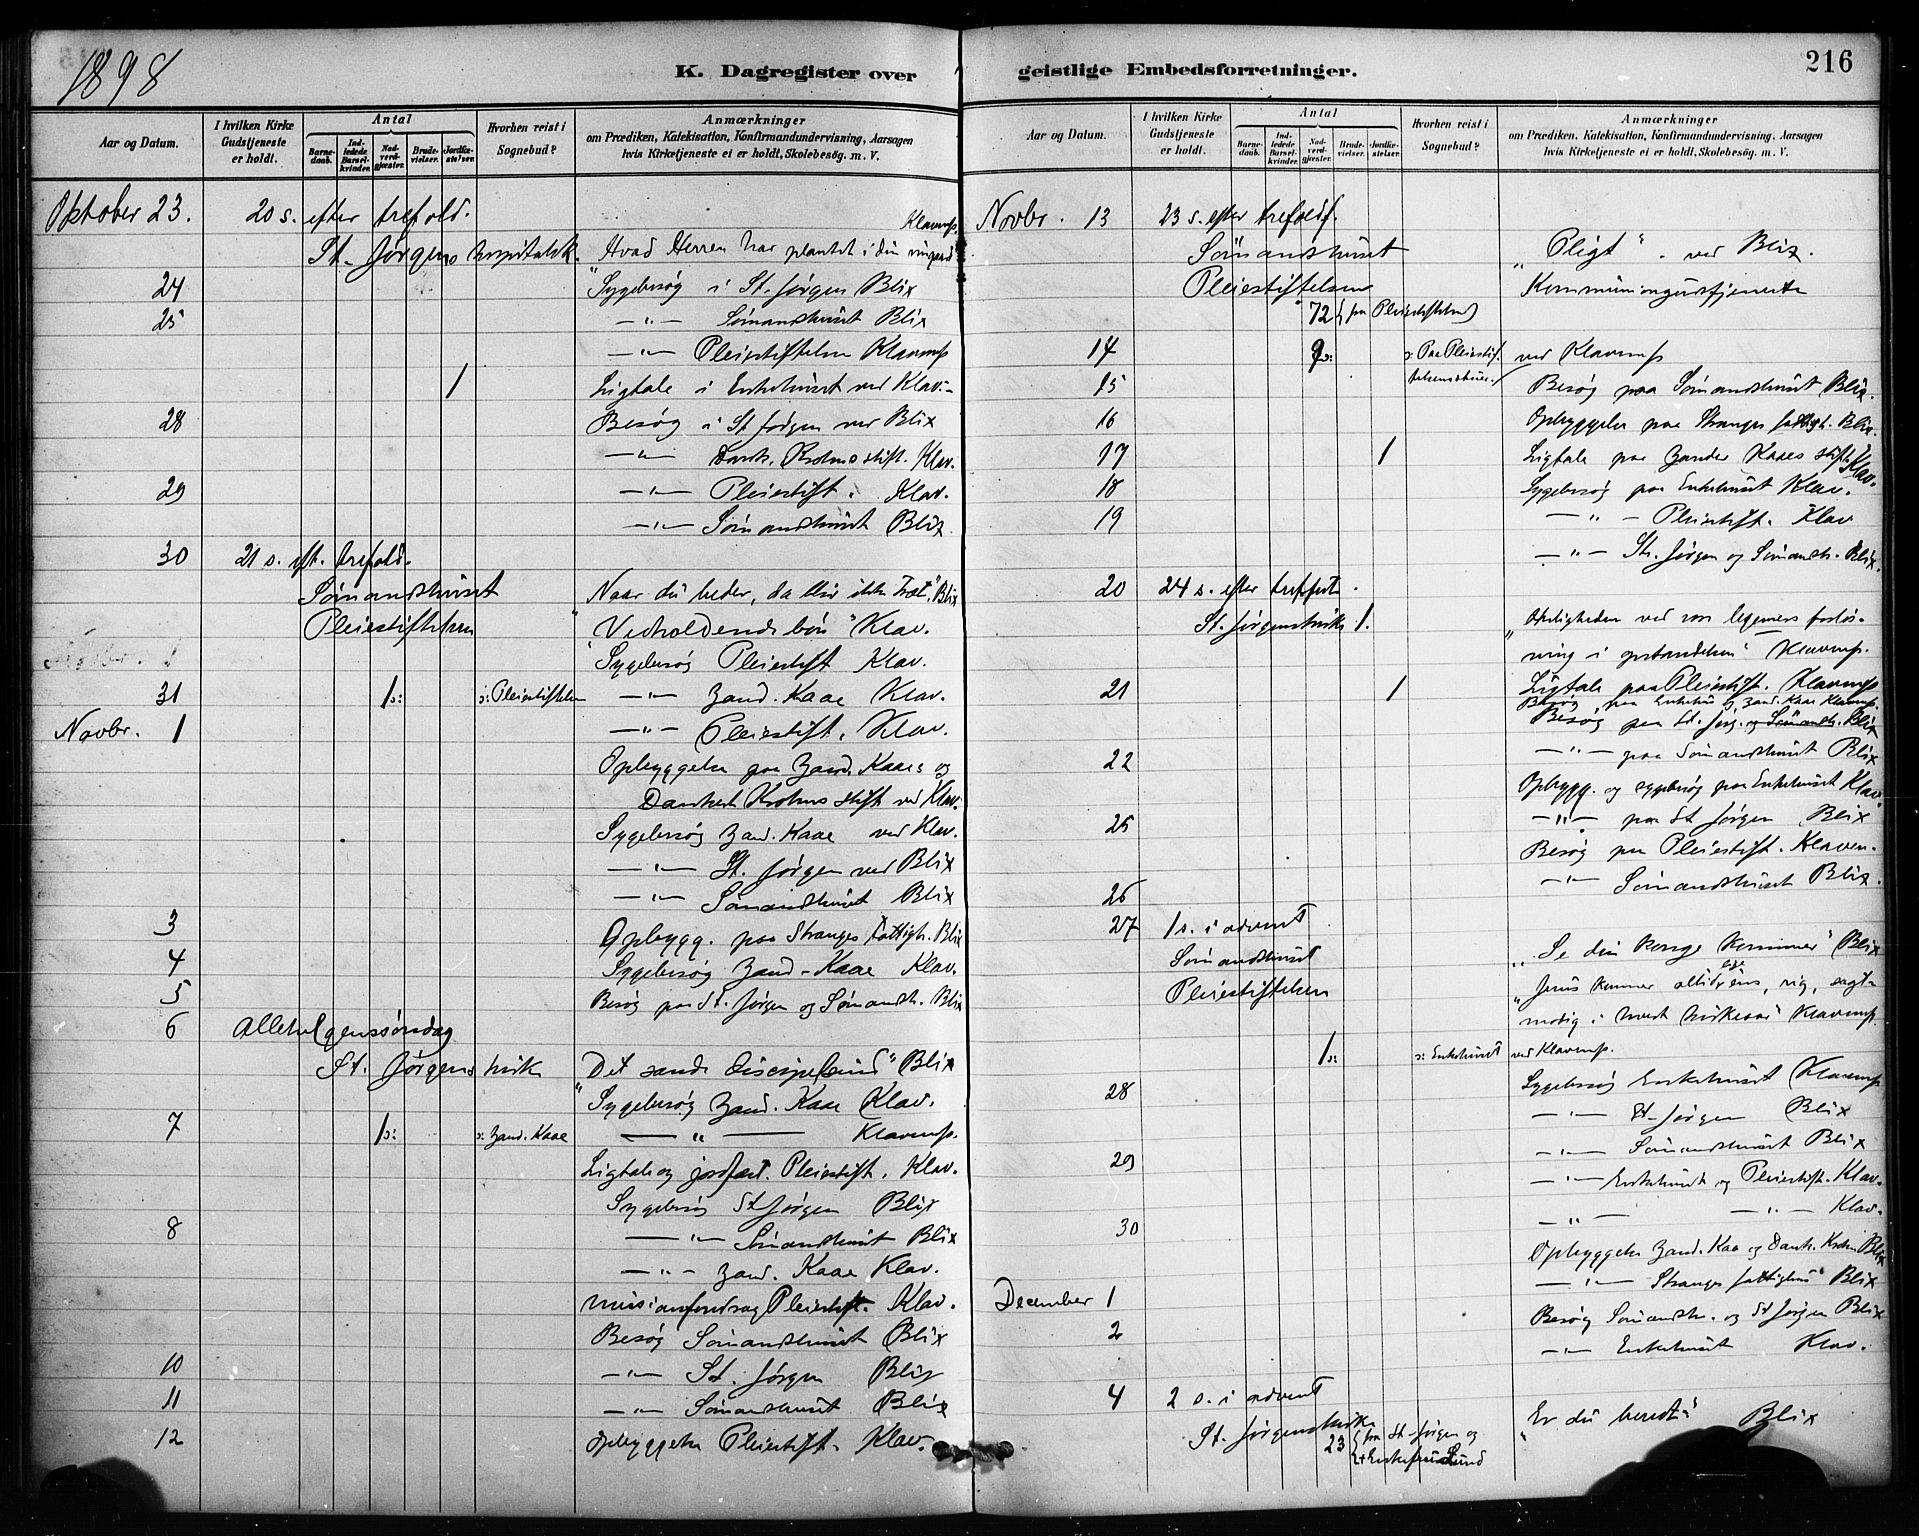 1898
K. Dagregister over
Aar og Datum.
I hvilken Kirke Gudstjeneste er holdt.
Antal
Barnedaab.
Indledede Barselkvinder.
Nadverdgjester.
Brudevielser.
Jordfæstelser.
Hvorhen reist i Sognebud?
Anmærkninger
om Prædiken, Katekisation, Konfirmandundervisning, Aarsagen
hvis Kirketjeneste ei er holdt, Skolebesøg. m. V.
Oktober 23. 20 s. efter trefold. Klavenss.
St. Jørgens hospitalsk. Hvad Herren har plantet i din
24 "Sygebesøg i St. Jørgen Blix
25 —"— Sømandshuset Blix
—"— Pleiestiftelsen Klavenss
1 Ligtale i Enkehuset ved Klav.
28 Besøg i St Jørgen ved Blix
—"— Dank. Krohns stift. Klav.
29 —"— Pleiestift. Klav.
—"— Sømandshuset Blix.
30 21 s. eft. trefold.
Sømandshuset Naar du beder, da bliv ikke træt." Blix
Pleiestiftelsen "Vedholdende bøn" Klav.
"Sygebesøg Pleiestift Klav.
31 1 ɔ: ɔ: Pleiestiftelsen —"— Zand. Kaae Klav.
Novbr. 1 —"— Pleiestift. Klav.
Opbyggelse paa Zand. Kaaes og
Dankert Krohns stift ved Klav.
Sygebesøg Zand. Kaae ved Klav.
—"— St. Jørgen ved Blix
—"— Sømandshuset Blix
3 Opbygg. paa Stranges Fattigh. Blix
4 Sygebesøg Zand. Kaae Klav.
5 Besøg paa St. Jørgen og Sømandsh. Blix
6 Allehelgenssøndag
St. Jørgens kirke Det sande Discipelsind" Blix
"Sygebesøg Zand. Kaae Klav.
7 1 ɔ: ɔ: Zand. Kaae —"— Klavenss.
Ligtale og jordfæst. Pleiestift. Klav.
Sygebesøg St Jørgen Blix
8 —"— Sømandshuset Blix
—"— Zand. Kaae Klav.
Missionsforedrag Pleiestift. Klav.
Besøg Sømandshuset Blix
10 —"— St. Jørgen Blix
11 —"— Sømandshuset Blix
12 Opbyggelse Pleiestift. Klav.
geistlige Embedsforretninger.
216
Aar og Datum.
I hvilken Kirke Gudstjeneste er holdt.
Antal
Barnedaab.
Indledede Barselkvinder.
Nadverdgjester.
Brudevielser.
Jordfæstelser.
Hvorhen reist i Sognebud?
Anmærkninger
om Prædiken, Katekisation, Konfirmandundervisning, Aarsagen
hvis Kirketjeneste ei er holdt, Skolebesøg. m. V.
Novbr. 13 23 s. efter trefoldf.
Sømandshuset „Pligt" ved Blix.
Pleiestiftelsen Kommuniongudstjeneste
72 (fra Pleiestiftelsen)
14 ɔ: Paa Pleiestif- ved Klavenss
15 Besøg paa Sømandshuset Blix.
16 Opbyggelse paa Stranges fattigh. Blix.
17 1 Ligtale paa Zander Kaaes stift. Klav.
18 Sygebesøg paa Enkehuset Klav.
19 —"— Pleiestift. Klav
—"— St. Jørgen og Sømandsh. Blix.
20 24 s. efter trefold.
St. Jørgenskirke 1. ved vor legemers forløs-
ning i opstandelsen" Klavenss.
21 1 Ligtale paa Pleiestift. Klavenss
Besøg paa Enkehus og Zand. Kaae Klavenss.
Besøg paa St. Jørg. og Sømandsh. Blix
22 —"— paa Sømandshuset Blix
Opbygg. og sygebesøg paa Enkehuset Klav.
25 —"— paa St Jørgen Blix
Besøg paa Pleiestift. Klaven.
26 —"— Sømandshuset Blix.
27 1 s. i advent
Sømandshuset „Se din konge kommer" Blix
Pleiestiftelsen „Jesus kommer altid , rig, sagt-
modig i hvert kirkeaar" Klavenss.
1 ɔ: ɔ: Enkehuset ved Klavenss.
28 Sygebesøg Enkehuset Klavenss
—"— St. Jørgen Blix
—"— Sømandshuset Blix
29 —"— Enkehuset og Pleiestift. Klav.
30 —"— —"— Klav.
Opbyggelse Zand. Kaae og Dank. Krohn Blix
—"— Stranges fattighus Blix
December 1 Besøg Sømandsh. og St Jørgen Blix
2 —"— Enkehuset Klav.
4 2 s. i advent
St. Jørgenskirke „Er du beredt" Blix
23 fra St. Jørgen og